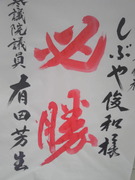 しぶや俊和様
必勝
参議院議員
有田芳生